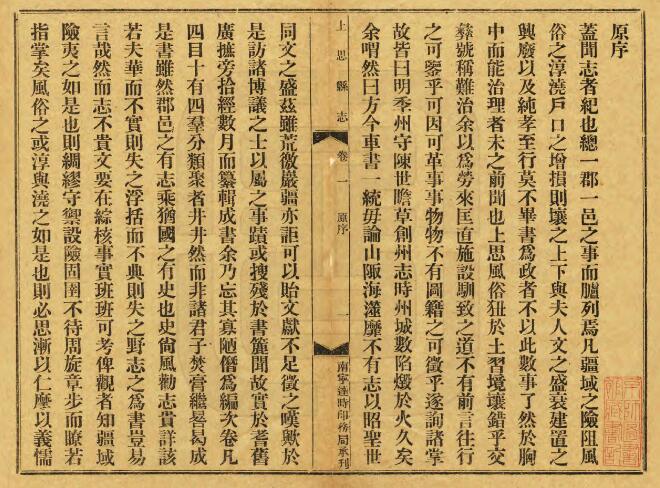 原序
蓋聞志者紀也總一郡一邑之事而臚列焉凡疆域之險阻風
俗之淳澆戶口之增損則壤之上下與夫人文之盛衰建置之
興廢以及純孝至行莫不畢書爲政者不以此數事了然於胸
中而能治理者未之前聞也上思風俗狃於土習境壤錯乎交
彝號稱難治余以爲勞來匡直施設馴致之道不有前言往行
之可鑒乎可因可革事事物物不有圖籍之可徵乎遂詢諸掌
故皆曰明季州守陳世瞻草創州志時州城數陷燬於火久矣
余喟然曰方今車書一統毋論山陬海澨靡不有志以昭聖世
上思縣志
卷一
原序
一
南寧達時印務局承刊
同文之盛茲雖荒徼巖疆亦詎可以貽文獻不足徵之嘆歟於
是訪諸博議之士以屬之事蹟或搜殘於書簏聞故實於耆舊
廣摭旁拾經數月而纂輯成書余乃忘其寡陋僭爲編次卷凡
四目十有四羣分類聚者井井然而非諸君子焚膏繼晷曷成
是書雖然郡邑之有志乘猶國之有史也史尙風勸志貴詳該
若夫華而不實則失之浮括而不典則失之野志之爲書豈易
言哉然而志不貴文要在綜核事實班班可考俾觀者知疆域
險夷之如是也則綢繆守禦設險固圉不待周旋章步而瞭若
指掌矣風俗之或淳與澆之如是也則必思漸以仁摩以義懦